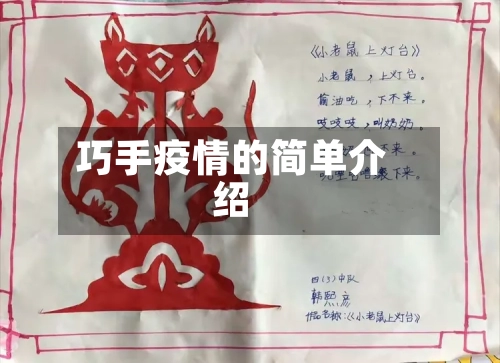 《小老鼠上灯台》
小老鼠，上灯台。
偷油吃，下不来。
吱吱吱，叫奶奶，
巧手疫情的简单介
绍
来。
下来。
四(3)中队
韩熙彦
作品名称:《小老鼠上灯台》